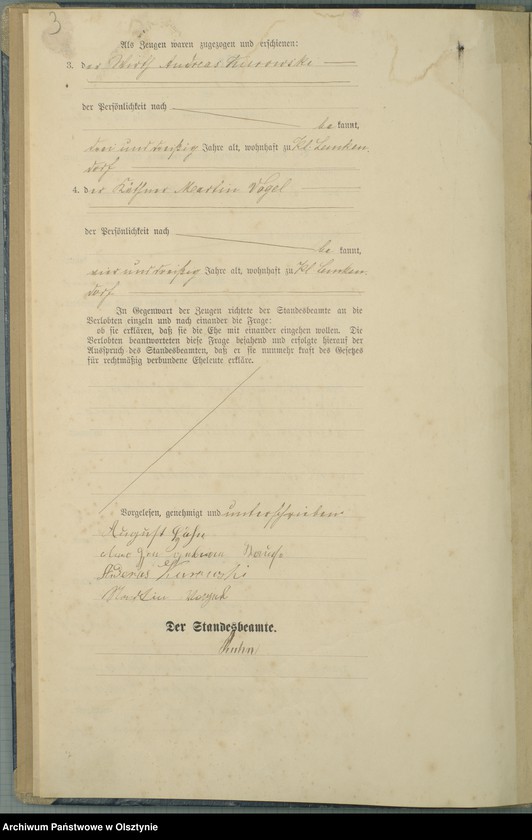 3
Als Zeugen waren zugezogen und erschienen:
3. der Wirth Andreas Kurowski
der Persönlichkeit nach
be kannt,
drei und dreißig Jahre alt, wohnhaft zu Kl Lemken
dorf
4. der Käthner Martin Vogel
der Persönlichkeit nach
be kannt,
vier und dreißig Jahre alt, wohnhaft zu Kl Lemken
dorf
In Gegenwart der Zeugen richtete der Standesbeamte an die
Verlobten einzeln und nach einander die Frage:
ob sie erklären, daß sie die Ehe mit einander eingehen wollen. Die
Verlobten beantworteten diese Frage bejahend und erfolgte hierauf der
Ausspruch des Standesbeamten, daß er sie nunmehr kraft des Gesetzes
für rechtmäßig verbundene Eheleute erkläre.
Vorgelesen, genehmigt und unterschrieben
August
geborene
Kurowski
Der Standesbeamte.
Kuhn
Archiwum Państwowe w Olsztynie